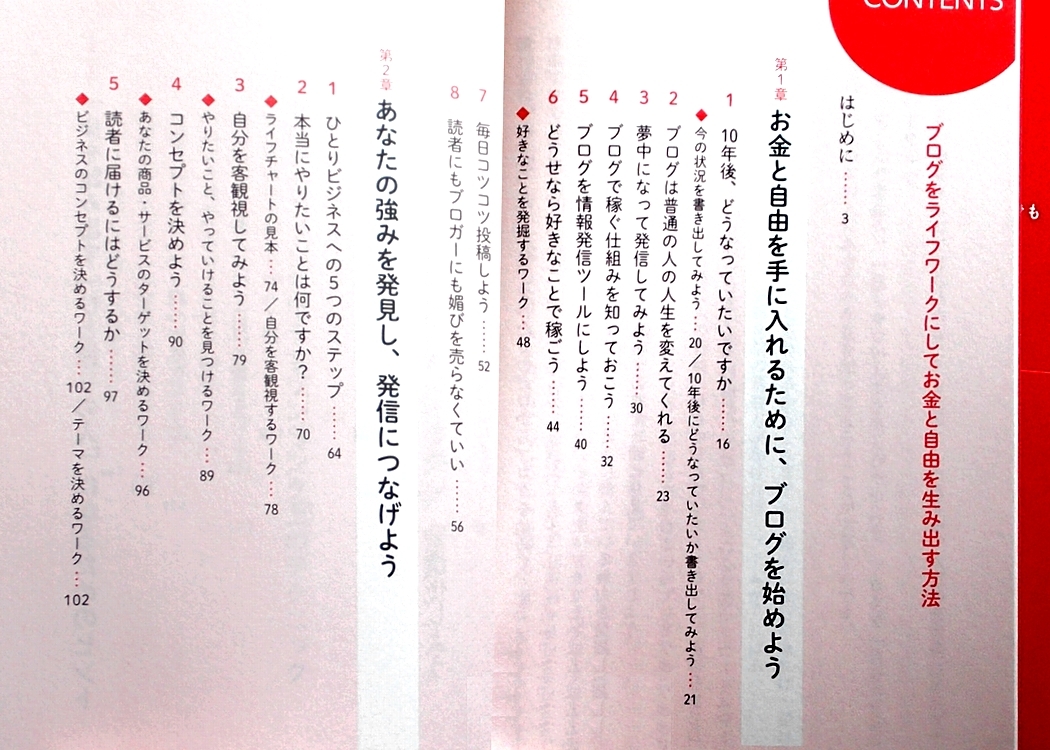 CONTENTS
も
ブログをライフワークにしてお金と自由を生み出す方法
はじめに …… 3
第1章
お金と自由を手に入れるために、ブログを始めよう
1 10年後、どうなっていたいですか …… 16
◆ 今の状況を書き出してみよう … 20 / 10年後にどうなっていたいか書き出してみよう … 21
2 ブログは普通の人の人生を変えてくれる …… 23
3 夢中になって発信してみよう …… 30
4 ブログで稼ぐ仕組みを知っておこう …… 32
5 ブログを情報発信ツールにしよう …… 40
6 どうせなら好きなことで稼ごう …… 44
◆ 好きなことを発掘するワーク … 48
7 毎日コツコツ投稿しよう …… 52
8 読者にもブロガーにも媚びを売らなくていい …… 56
第2章
あなたの強みを発見し、発信につなげよう
1 ひとりビジネスへの5つのステップ …… 64
2 本当にやりたいことは何ですか? …… 70
◆ ライフチャートの見本 … 74 / 自分を客観視するワーク … 78
3 自分を客観視してみよう …… 79
◆ やりたいこと、やっていけることを見つけるワーク … 89
4 コンセプトを決めよう …… 90
◆ あなたの商品・サービスのターゲットを決めるワーク … 96
5 読者に届けるにはどうするか …… 97
◆ ビジネスのコンセプトを決めるワーク … 102 / テーマを決めるワーク … 102